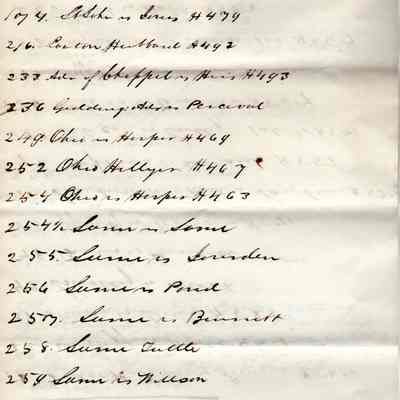 St John vs Jones #479
216. Canton Hubbard #492
233 Adr of Chappel vs Heirs #493
236 Giddings Adr vs Percival
249 Ohio vs Harper #469
252 Ohio Hillyer #467
254 Ohio vs Harper #463
254½ Same vs Same
255. Same vs Lowrden
256 Same vs Pond
257. Same vs Bennett
258. Same Tuttle
259 Same vs Willson